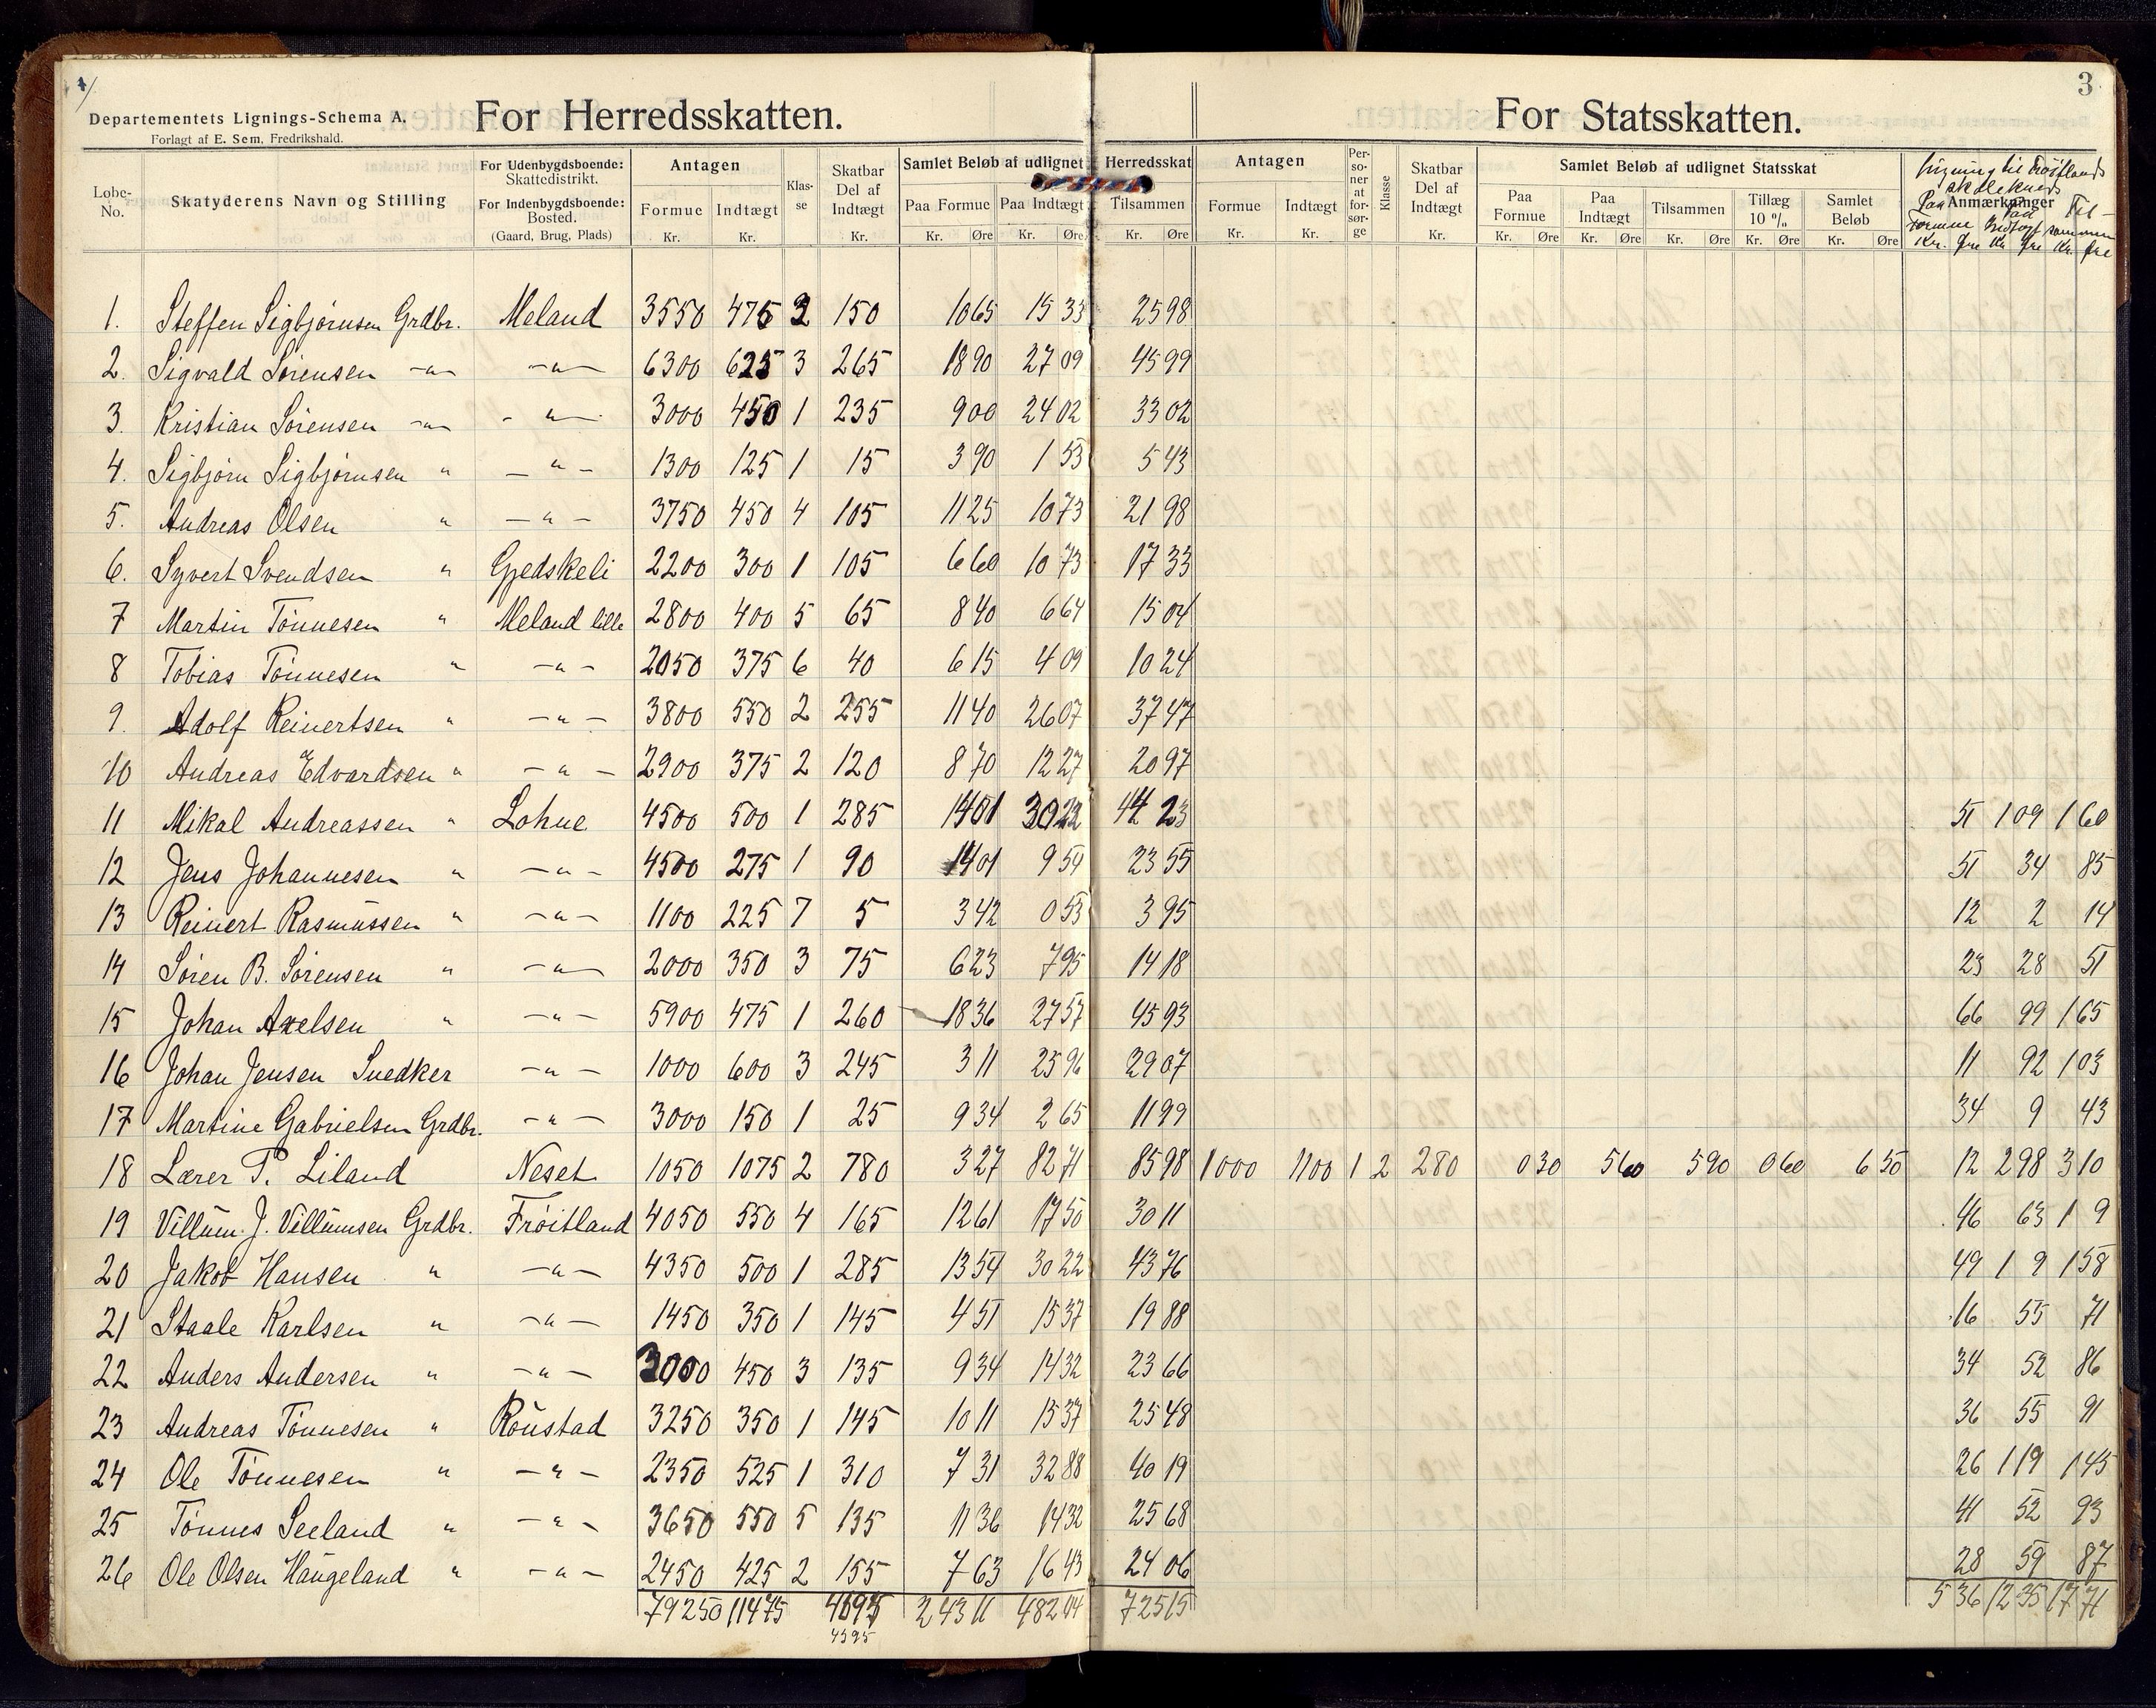 3
Departementets Lignings-Schema A.
Forlagt af E. Sem, Fredrikshald.
For Herredsskatten.
For Statsskatten.
Løbe-No. Skatyderens Navn og Stilling For Udenbygdsboende: Skattedistrikt. For Indenbygdsboende: Bosted. (Gaard, Brug, Plads) Antagen Formue Kr. Indtægt Kr. Klas-se Skatbar Del af Indtægt Kr. Samlet Beløb af udlignet Herredsskat Paa Formue Kr. Øre Paa Indtægt Kr. Øre Tilsammen Kr. Øre
Antagen Formue Kr. Indtægt Kr. Per-so-ner at for-sør-ge Klasse Skatbar Del af Indtægt Kr. Samlet Beløb af udlignet Statsskat Paa Formue Kr. Øre Paa Indtægt Kr. Øre Tilsammen Kr. Øre Tillæg 10 % Kr. Øre Samlet Beløb Kr. Øre Anmærkninger
Paa Formue Indtægt Til-sammen
Kr. Øre Kr. Øre Kr. Øre
1. Steffen Sigbjørnsen Grdbr. Meland 3550 475 3 150 10 65 15 33 25 98
2. Sigvald Sörensen -"- -"- 6300 625 3 265 18 90 27 09 45 99
3. Kristian Sörensen -"- -"- 3000 450 1 235 9 00 24 02 33 02
4. Sigbjörn Sigbjörnsen " -"- 1300 125 1 15 3 90 1 53 5 43
5. Andreas Olsen " -"- 3750 450 4 105 11 25 10 73 21 98
6. Syvert Svendsen " Gjedskeli 2200 300 1 105 6 60 10 73 17 33
7 Martin Tönnesen " Meland lille 2800 400 5 65 8 40 6 64 15 04
8 Tobias Tönnesen " -"- 2050 375 6 40 6 15 4 09 10 24
9. Adolf Reinertsen " -"- 3800 550 2 255 11 40 26 07 37 47
10 Andreas Edvardsen " -"- 2900 375 2 120 8 70 12 27 20 97
11 Mikal Andreassen " Lohne 4500 500 1 285 14 01 30 22 44 23 51 1 09 1 60
12 Jens Johannesen " -"- 4500 275 1 90 14 01 9 54 23 55 51 34 85
13 Reinert Rasmussen " -"- 1100 225 7 5 3 42 0 53 3 95 12 2 14
14 Sören B. Sörensen " -"- 2000 350 3 75 6 23 7 95 14 18 23 28 51
15 Johan Axelsen " -"- 5900 475 1 260 18 36 27 57 45 93 66 99 1 65
16 Johan Jensen Snedker -"- 1000 600 3 245 3 11 25 96 29 07 11 92 1 03
17 Martine Gabrielsen Grdbr. -"- 3000 150 1 25 9 34 2 65 11 99 34 9 43
18 Lærer P. Liland Neset 1050 1075 2 780 3 27 82 71 85 98 1000 1100 1 2 280 0 30 5 60 5 90 0 60 6 50 12 2 98 3 10
19 Villum J. Villumsen Grdbr. Fröitland 4050 550 4 165 12 61 17 50 30 11 46 63 1 9
20 Jakob Hansen " -"- 4350 500 1 285 13 54 30 22 43 76 49 1 9 1 58
21 Staale Karlsen " -"- 1450 350 1 145 4 51 15 37 19 88 16 55 71
22 Anders Andersen " -"- 3000 450 3 135 9 34 14 32 23 66 34 52 86
23 Andreas Tönnesen " Röustad 3250 350 1 145 10 11 15 37 25 48 36 55 91
24 Ole Tönnesen " -"- 2350 525 1 310 7 31 32 88 40 19 26 1 19 1 45
25 Tönnes Seeland " -"- 3650 550 5 135 11 36 14 32 25 68 41 52 93
26 Ole Olsen Haugeland " -"- 2450 425 2 155 7 63 16 43 24 06 28 59 87
79250 11475 243 11 482 04 725 15 5 36 12 35 17 71
4595